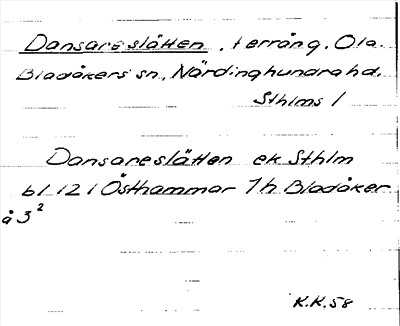 Dansareslätten, terräng. Ola.
Bladåkers sn., Närdinghundra hd.
Sthlms l
Dansareslätten ek Sthlm
bl 121 Östhammar Th Bladåker
å 3²
K.K. 58